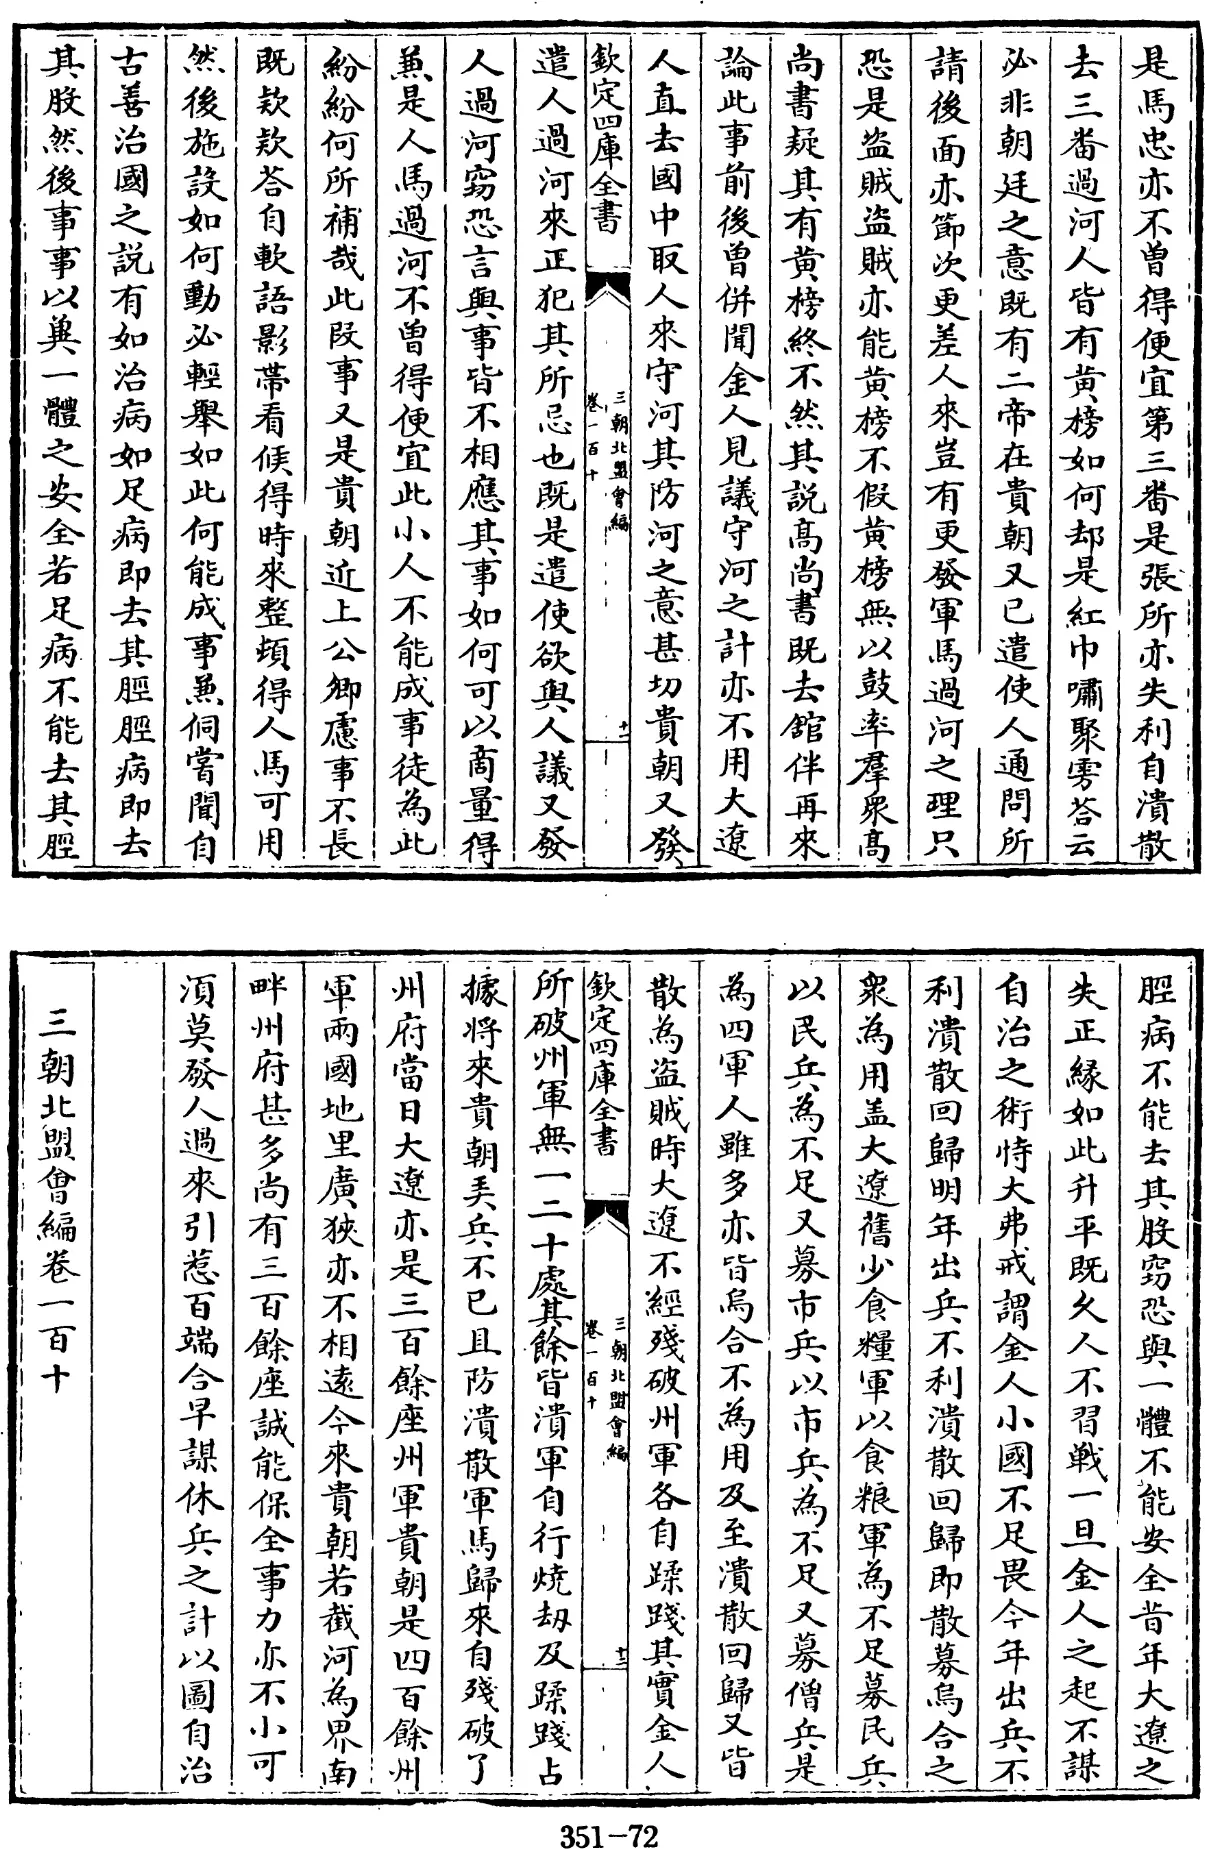 是馬忠亦不曽得便宜第三畨是張所亦失利自潰散
去三畨過河人皆有黄榜如何却是紅巾嘯聚雱荅云
必非朝廷之意既有二帝在貴朝又已遣使人通問所
請後面亦節次更差人來豈有更發軍馬過河之理只
恐是盜賊盜賊亦能黄榜不假黄榜無以鼓率羣衆髙
尚書疑其有黄榜終不然其説髙尚書既去舘伴再來
論此事前後曾併聞金人見議守河之計亦不用大遼
人直去國中取人來守河其防河之意甚切貴朝又發
欽定四庫全書
三朝北盟會編
卷一百十
十二
遣人過河來正犯其所忌也既是遣使欲與人議又發
人過河竊恐言與事皆不相應其事如何可以商量得
兼是人馬過河不曾得便宜此小人不能成事徒為此
紛紛何所補哉此段事又是貴朝近上公卿慮事不長
既欵欵荅自軟語影帶看候得時來整頓得人馬可用
然後施設如何動必輕舉如此何能成事兼侗嘗聞自
古善治國之説有如治病如足病即去其脛脛病即去
其股然後事事以兾一體之安全若足病不能去其脛
脛病不能去其股竊恐與一體不能安全昔年大遼之
失正緣如此升平既久人不習戰一旦金人之起不謀
自治之術恃大弗戒謂金人小國不足畏今年出兵不
利潰散回歸明年出兵不利潰散回歸即散募烏合之
衆為用盖大遼舊少食糧軍以食粮軍為不足募民兵
以民兵為不足又募市兵以市兵為不足又募僧兵是
為四軍人雖多亦皆烏合不為用及至潰散回歸又皆
散為盜賊時大遼不經殘破州軍各自蹂踐其實金人
欽定四庫全書
三朝北盟會編
卷一百十
十三
所破州軍無一二十處其餘皆潰軍自行燒刼及蹂踐占
據將來貴朝弄兵不已且防潰散軍馬歸來自殘破了
州府當日大遼亦是三百餘座州軍貴朝是四百餘州
軍兩國地里廣狹亦不相遠今來貴朝若截河為界南
畔州府甚多尚有三百餘座誠能保全事力亦不小可
湏莫發人過來引惹百端合早謀休兵之計以圖自治
三朝北盟會編卷一百十
351-72